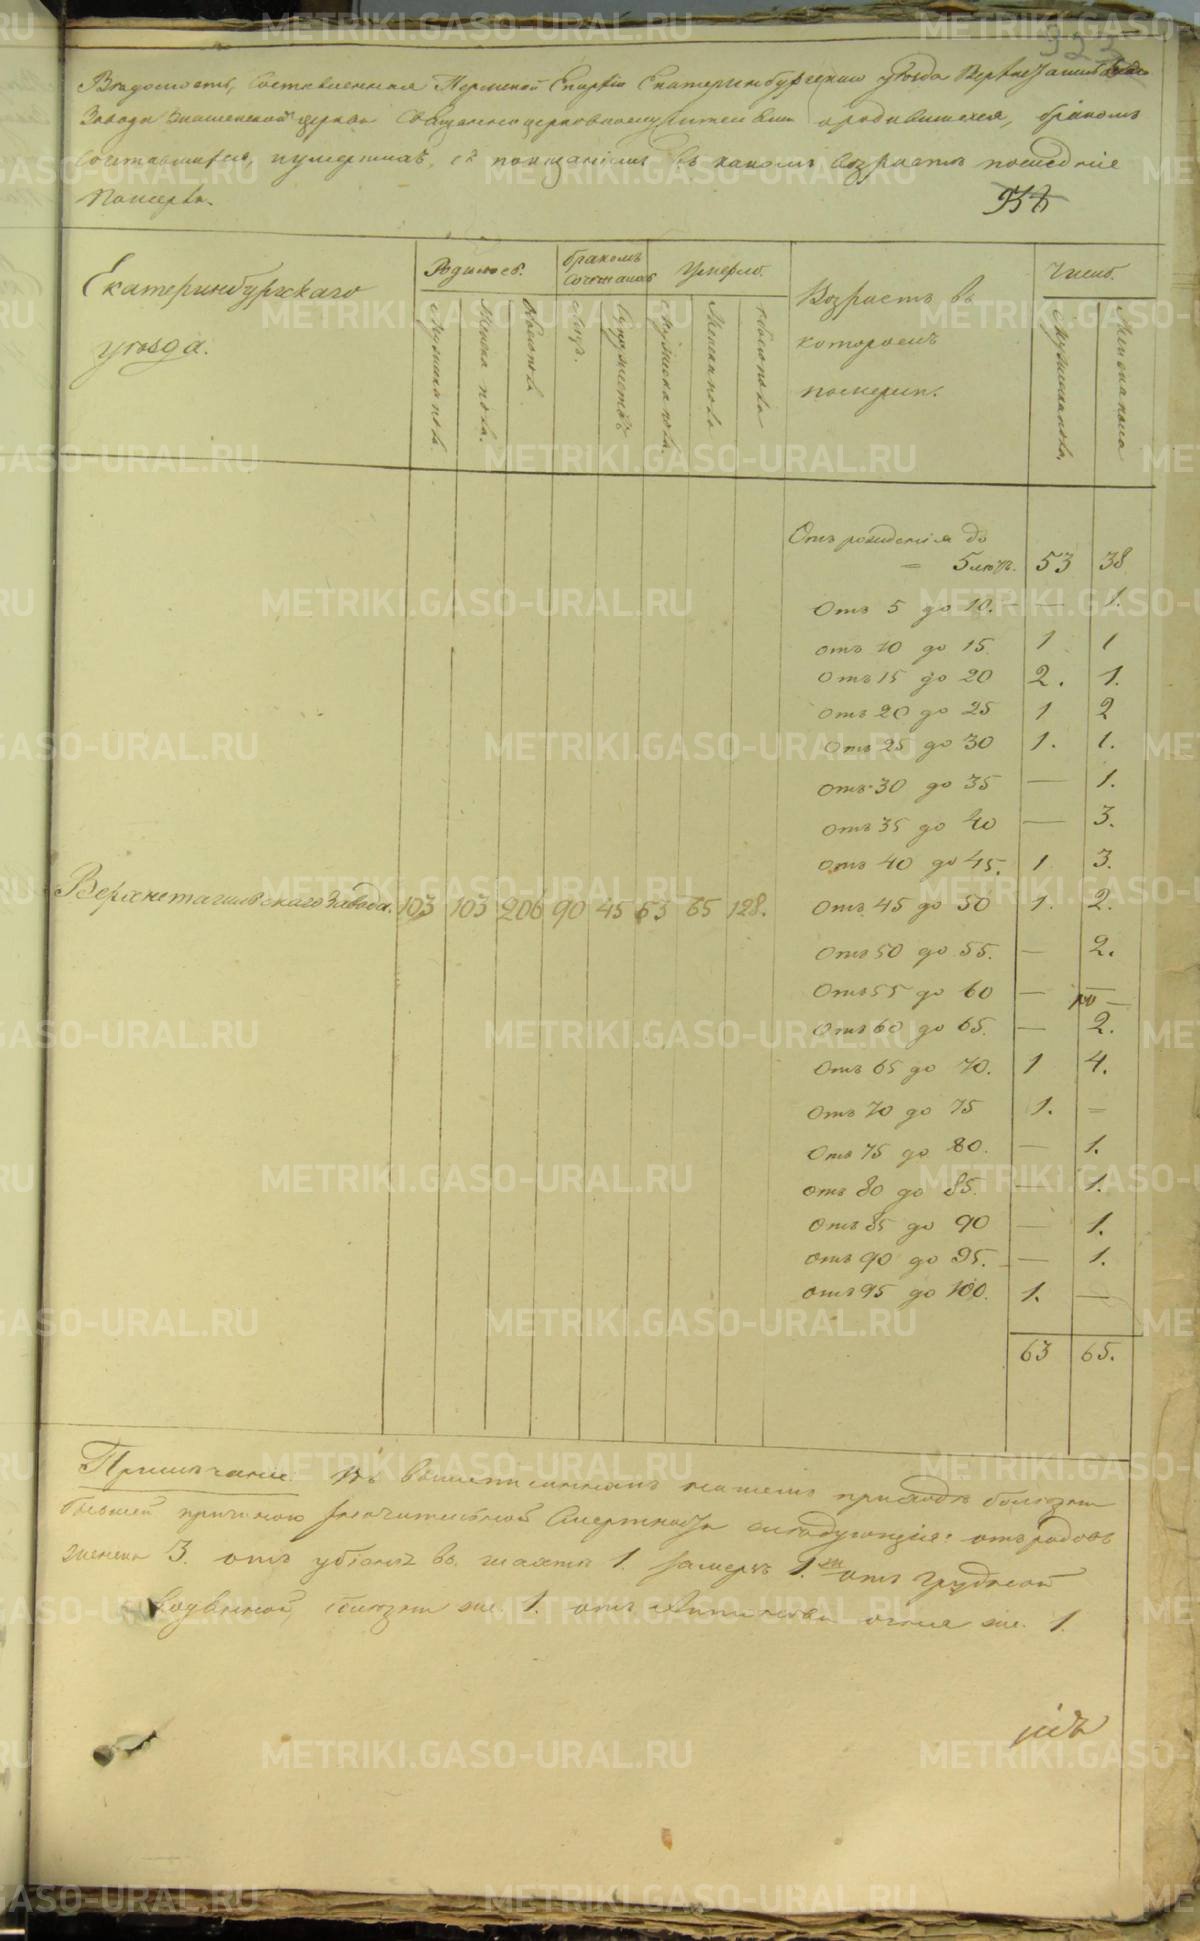 Ведомость, Составленная Пермской Епархіи Екатеринбургскаго уезда Верхнетагильскаго
Завода Знаменской церкви Священноцерковнослужителями о родившихся, бракомъ
Сочетавшихся, и умершихъ, съ показаніемъ въ какомъ возрасте последніе
Померли.
Екатеринбургскаго
уезда.
Родилось.
бракомъ
Сочеталось
Умерло.
Возрастъ въ
которомъ
померли.
Число.
Мужска пола
Женска пола.
Обоего пола
Лицъ.
Супружествъ
Мужска пола.
Женска пола
Обоего пола
Мужска пола,
Женска пола
Отъ рожденія до
5 летъ. 53 38
Отъ 5 до 10. — 1.
отъ 10 до 15 1 1
Отъ 15 до 20 2. 1.
Отъ 20 до 25 1 2
Отъ 25 до 30 1. 1.
Отъ 30 до 35 — 1.
Отъ 35 до 40 — 3.
Отъ 40 до 45. 1 3.
Верхнетагильскаго завода. 103 103 206 90 45 63 65 128.
Отъ 45 до 50 1. 2.
Отъ 50 до 55. — 2.
Отъ 55 до 60 — —
Отъ 60 до 65. — 2.
Отъ 65 до 70. 1 4.
Отъ 70 до 75 1. —
Отъ 75 до 80. — 1.
отъ 80 до 85. — 1.
Отъ 85 до 90 — 1.
отъ 90 до 95. — 1.
отъ 95 до 100. 1. —
63 65.
Примечаніе. Въ вышеписанномъ нашемъ приходе болезни
бывшей причиною значительной Смертности следующія: отъ родовъ
женска 3. отъ убіенія въ шахте 1. замерзъ 1. отъ грудной
водяной болезни же. 1. отъ Антонова огня же. 1.
METRIKI.GASO-URAL.RU